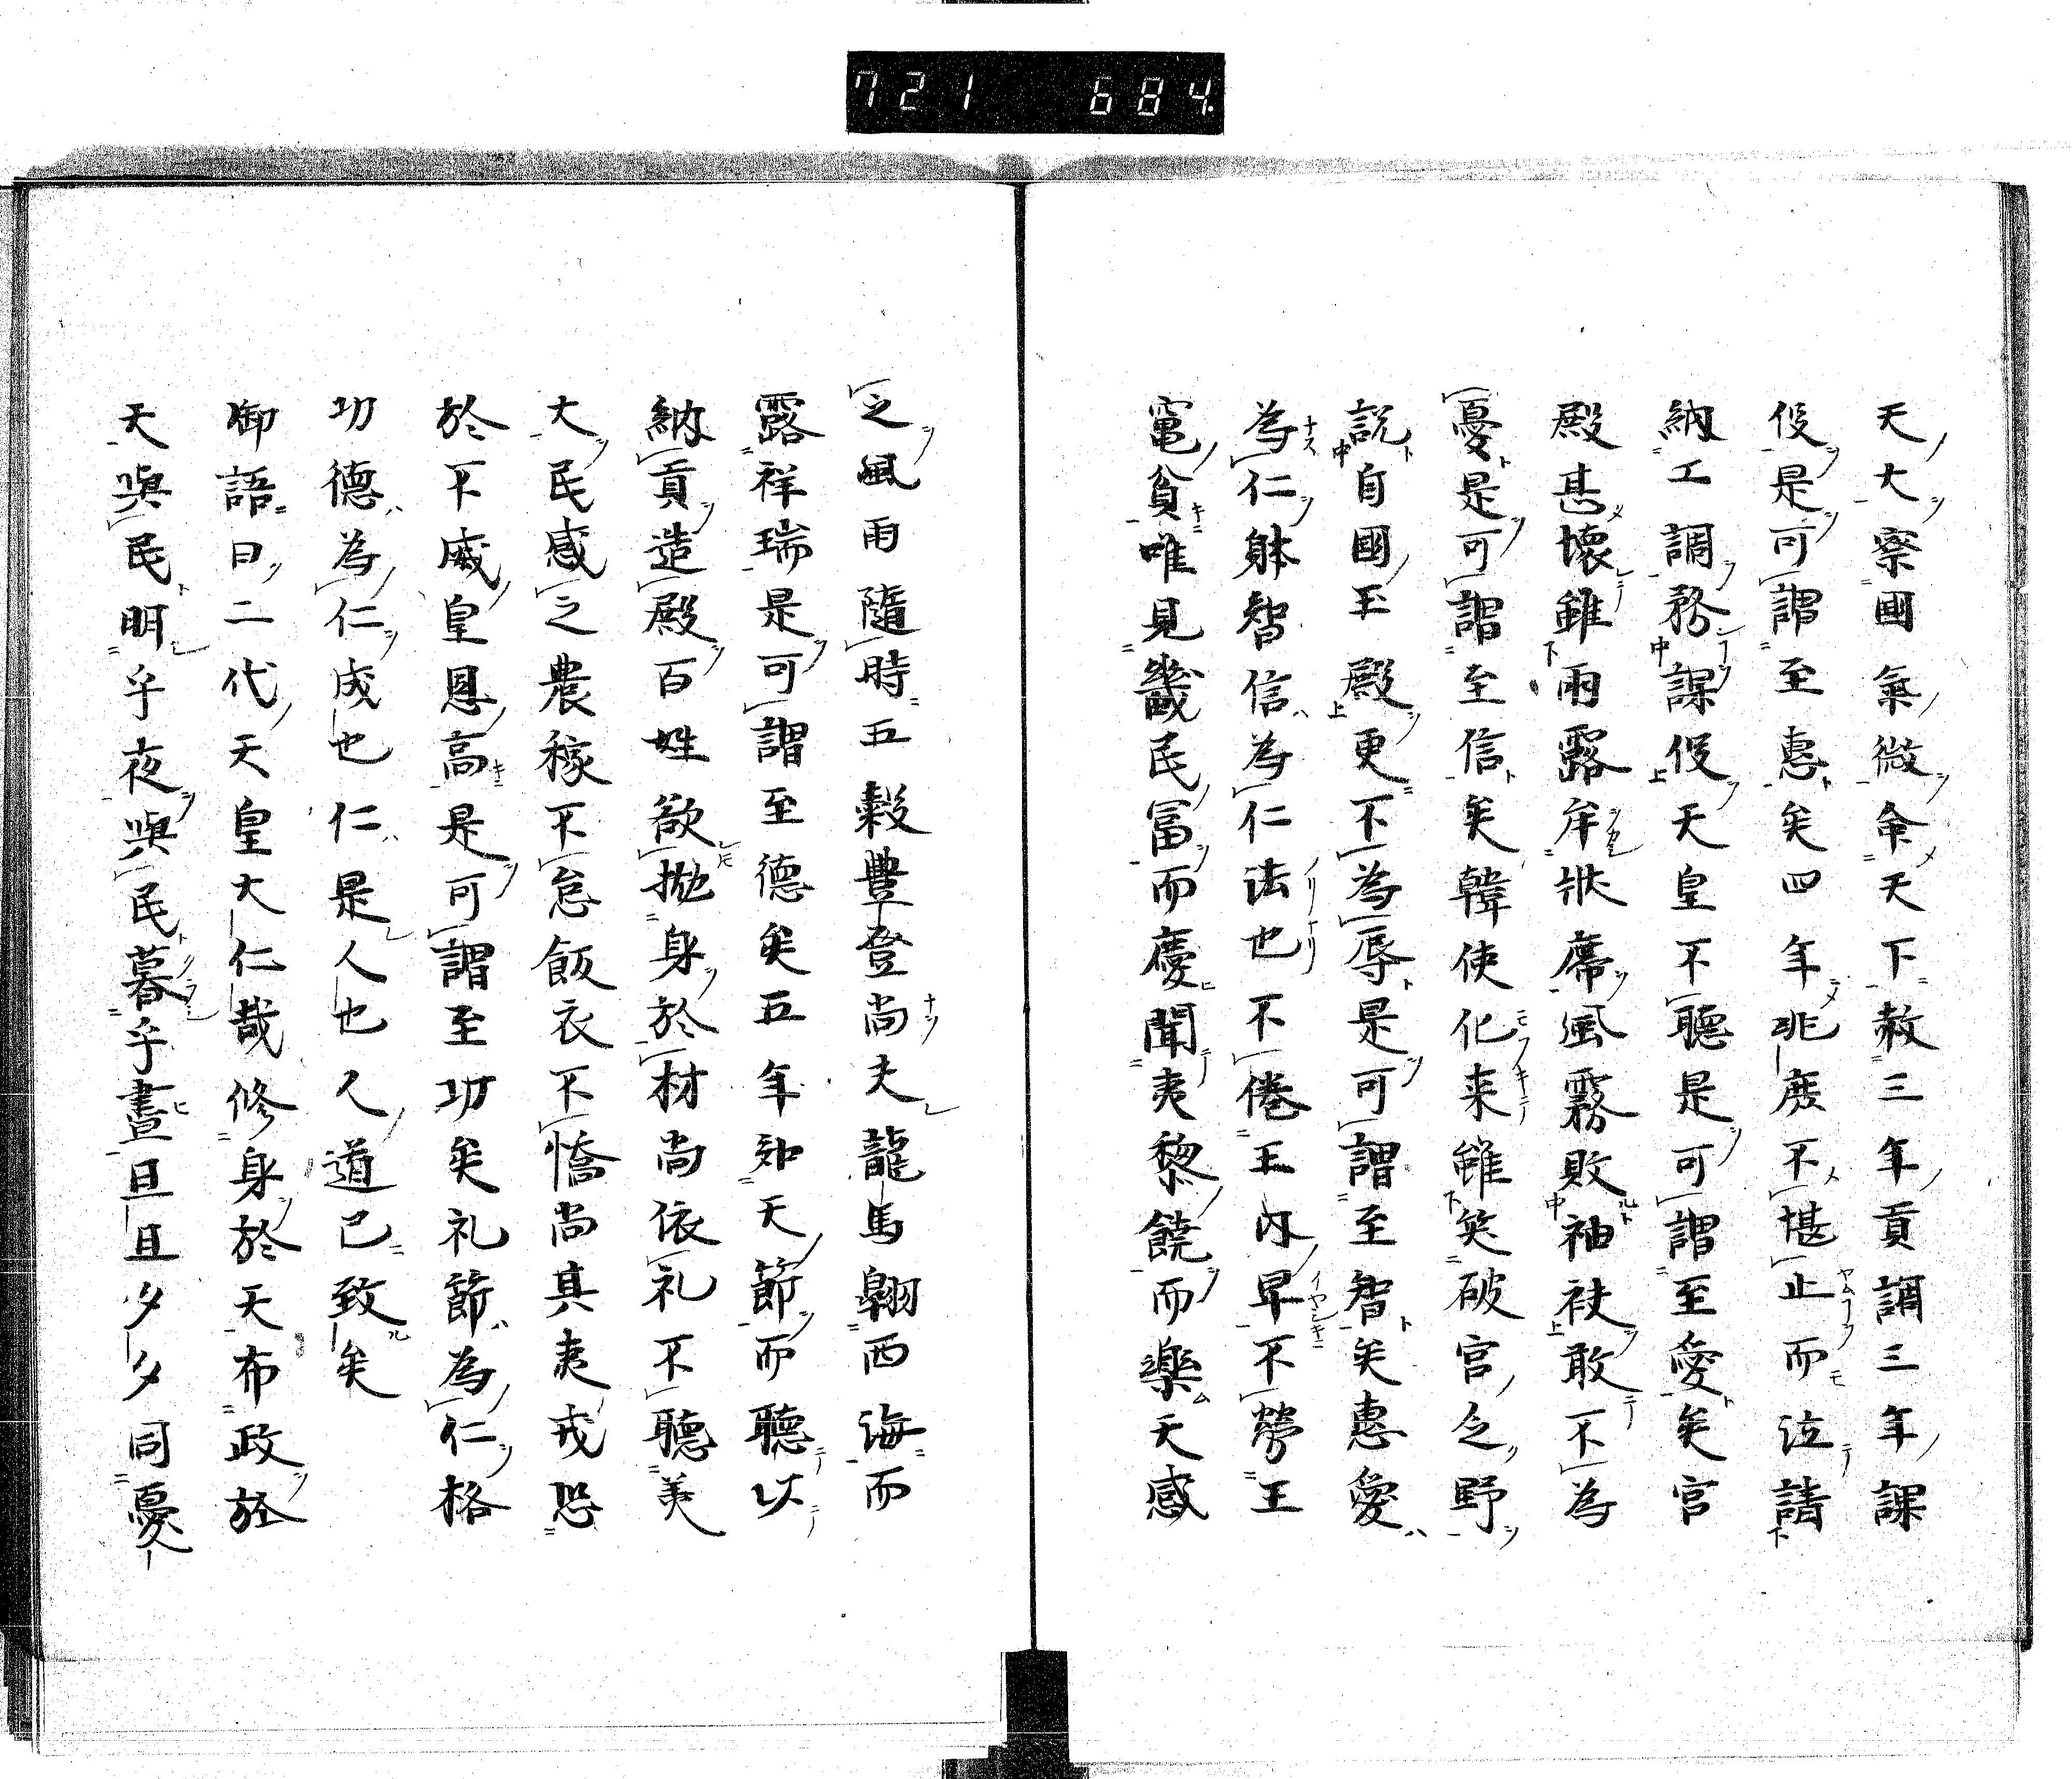 721 684
天大察國氣微命天下赦三年貢調三年課
役是可謂至惠矣四年兆庶不堪止而泣請
納工調務課役天皇不聽是可謂至愛矣宮
殿甚壞雖雨露牟狀席風霧敗袖袂敢不為
憂是可謂至信矣韓使化来雖笑破宮之野
說自國王殿更不為辱是可謂至智矣惠愛
為仁躰智信為仁法也不倦王內卑不勞王
竃貧唯見畿民冨而慶聞夷黎饒而樂天感
之風雨隨時五穀豐登尚夫龍馬翱西海而
露祥瑞是可謂至德矣五年知天節而聽以
納貢造殿百姓欲拋身於材尚依礼不聽美
大民感之農稼不怠飯衣不憍尚其夷戎恐
於不威皇恩高是可謂至功矣礼節為仁格
功德為仁成也仁是人也人道已致矣
御語曰二代天皇大仁哉修身於天布政於
天與民明乎夜與民暮乎晝旦旦夕夕同憂